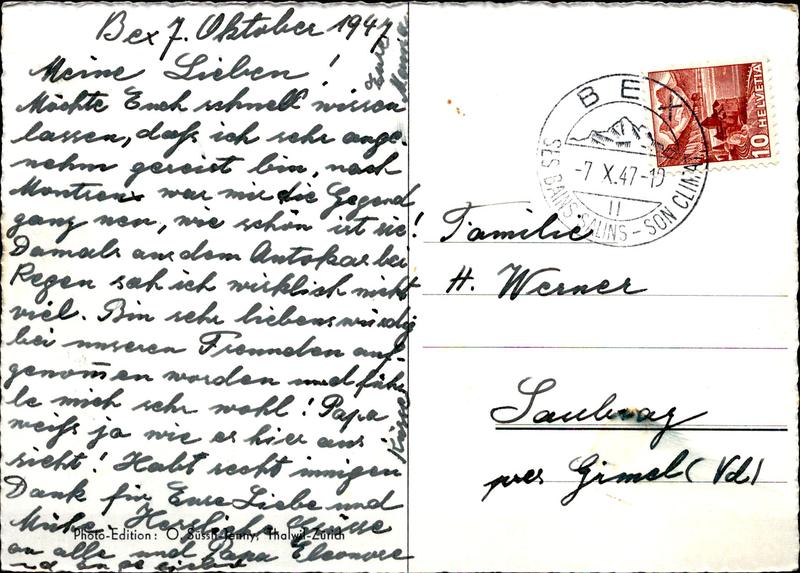 Bex 7. Oktober 1947
Meine Lieben!
Möchte Euch schnell wissen
lassen, daß ich sehr ange-
nehm gereist bin, nach
Montreux war mir die Gegend
ganz neu, wie schön ist sie!
Damals aus dem Autokar bei
Regen sah ich wirklich nicht
viel. Bin sehr liebenswürdig
bei unseren Freunden auf-
genom̅en worden und füh-
le mich sehr wohl! Papa
weiß ja wie es hier aus
sieht! Habt recht innigen
Dank für Eure Liebe und
Mühe. Herzliche Grüsse
an alle und Papa Eleonore
Küsse
Eure
Photo-Edition: O. Süssli-Jenny, Thalwil-Zürich
BEX
-7.X.47-19
II
SES BAINS SALINS - SON CLIMAT
10 HELVETIA
Familie
H. Werner
Saubraz
près Gimel (Vd)